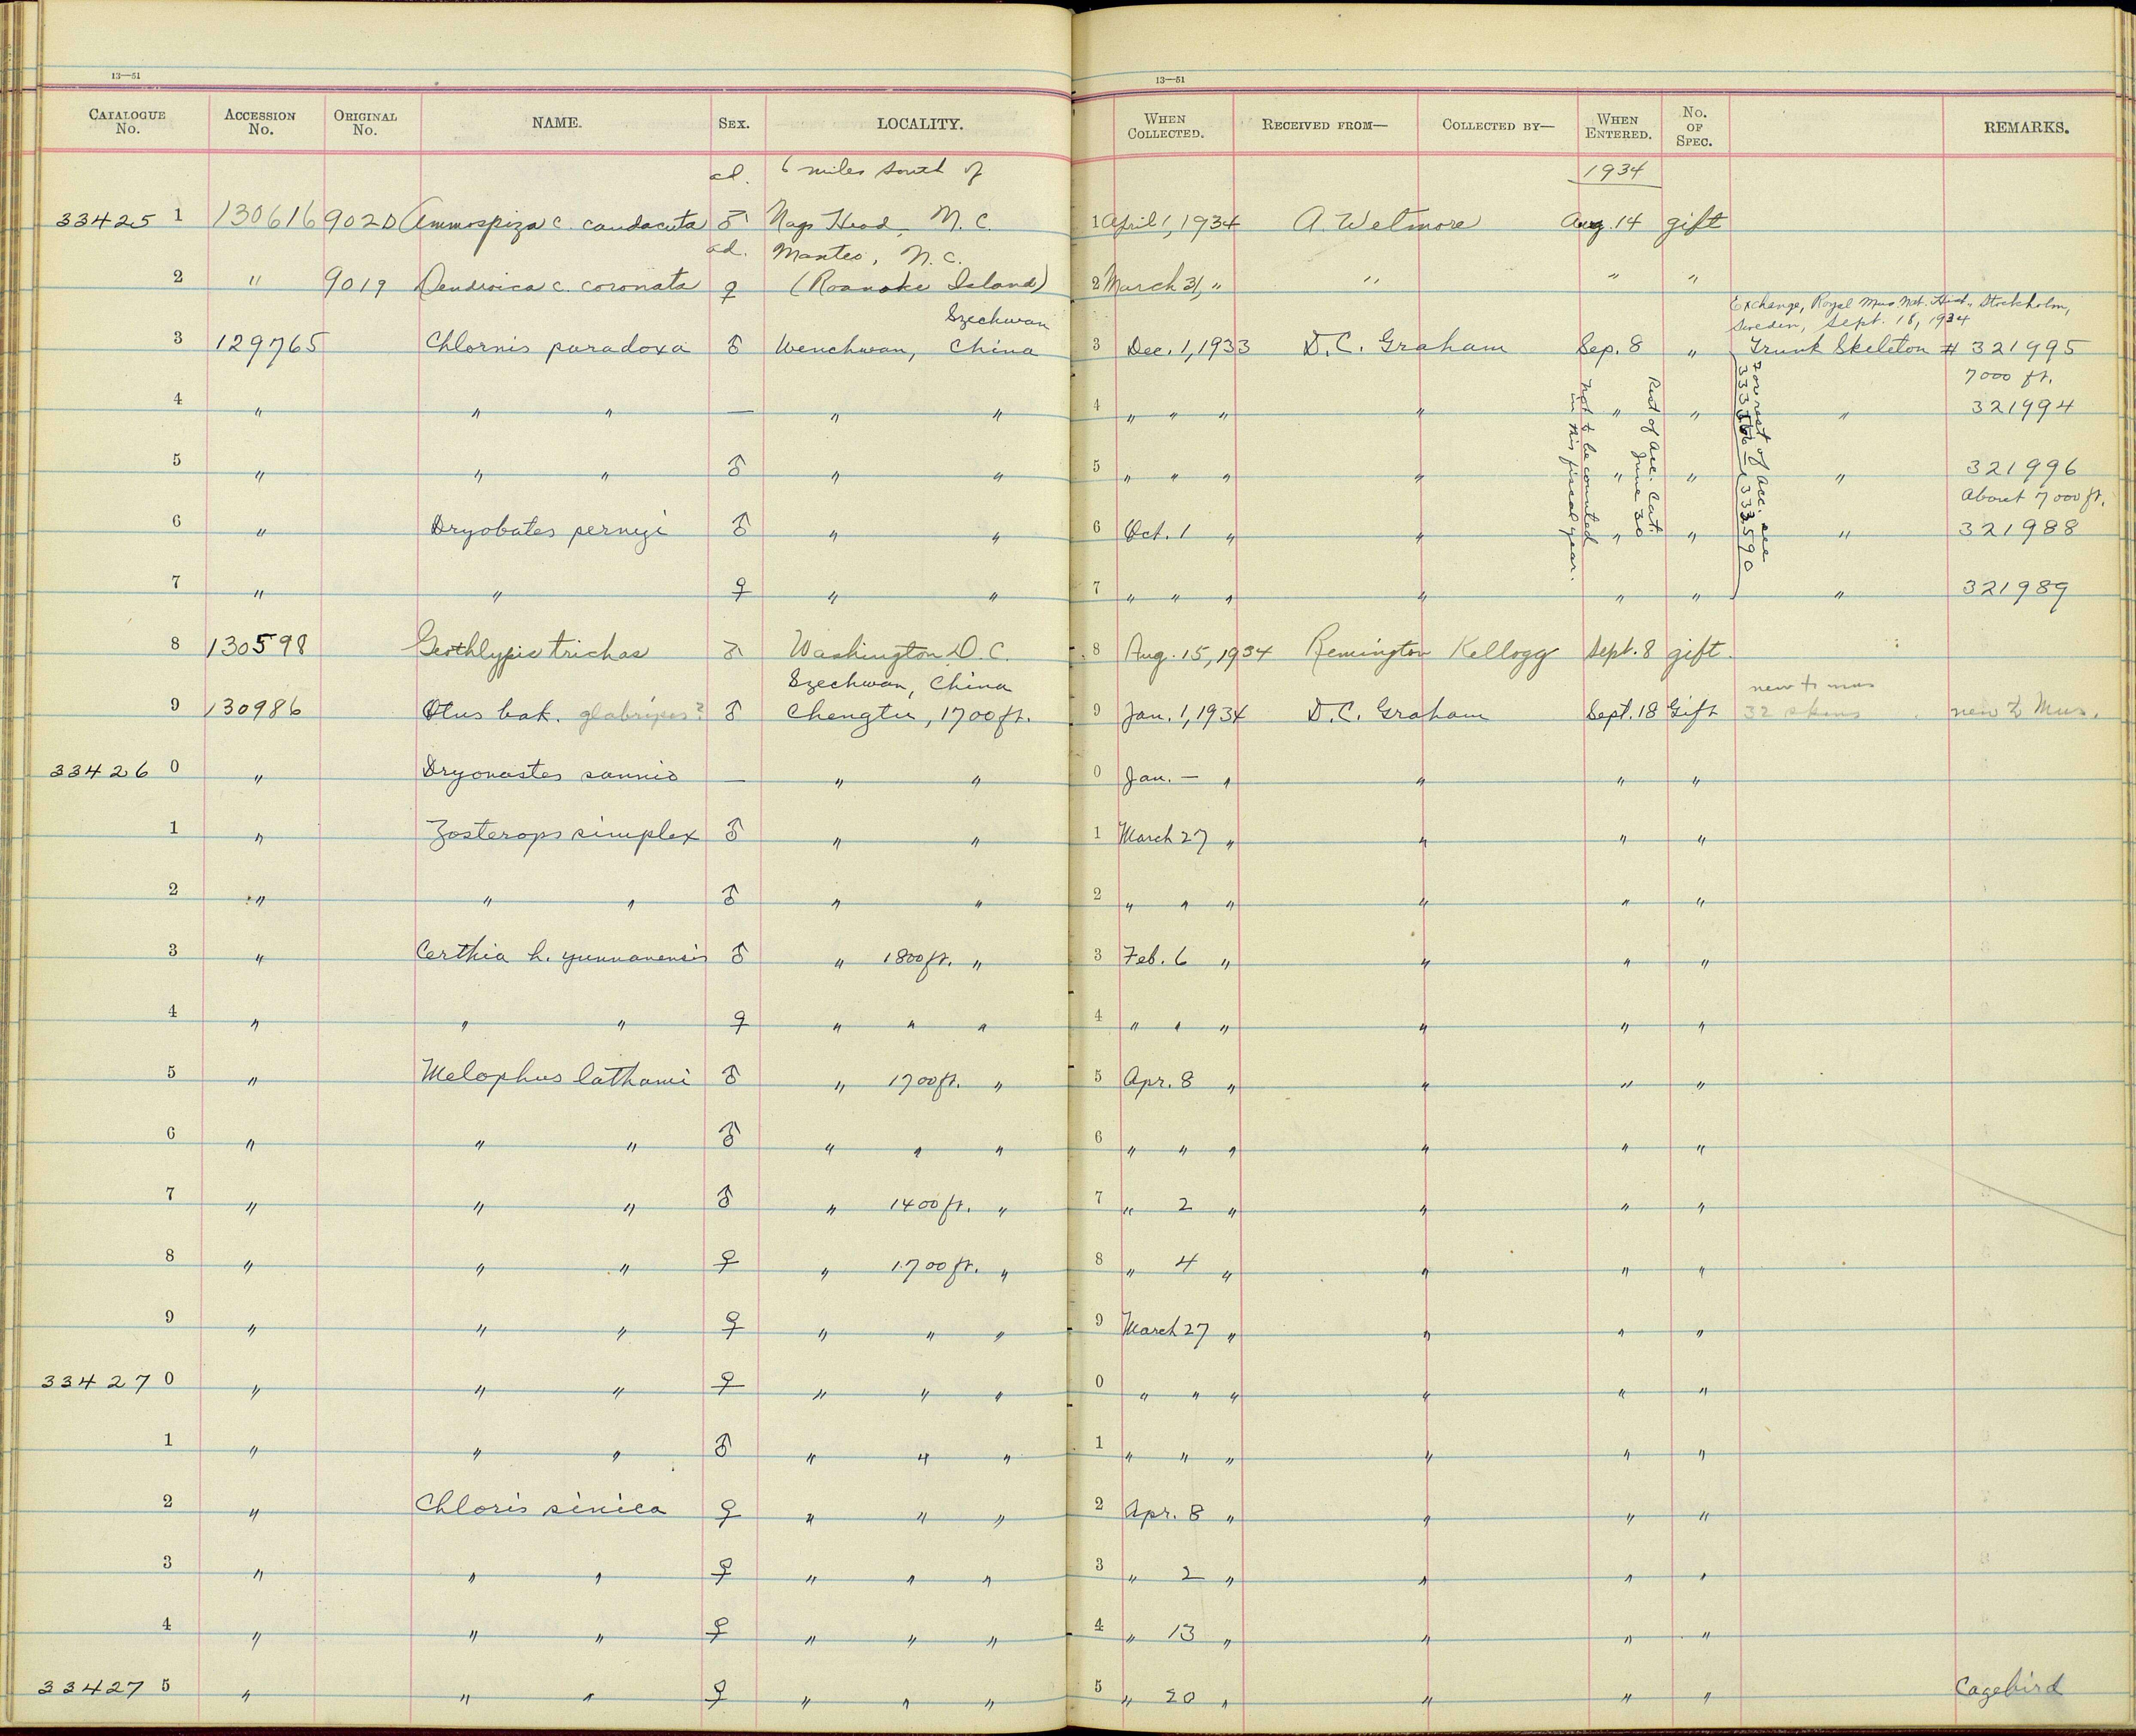 13—51
13—51
CATALOGUE No. ACCESSION No. ORIGINAL No. NAME. SEX. LOCALITY. WHEN COLLECTED. RECEIVED FROM— COLLECTED BY— WHEN ENTERED. NO. OF SPEC. REMARKS.
ad. 6 miles south of 1934
33425 1 130616 9020 Ammospiza c. caudacuta ♂ Nags Head, N.C. 1 April 1, 1934 A. Wetmore Aug. 14 gift
ad. Manteo, N.C.
2 " 9019 Dendroica c. coronata ♀ (Roanoke Island) 2 March 31, " " " "
Szechwan Exchange, Royal Mus. Nat. Hist., Stockholm,
Sweden, Sept. 18, 1934
3 129765 Chlornis paradoxa ♂ Wenchwan, China 3 Dec. 1, 1933 D.C. Graham Sep. 8 " Trunk Skeleton # 321995
7000 ft.
4 " " " — " " 4 " " " " " " " 321994
5 " " " ♂ " " 5 " " " " " " " 321996
About 7000 ft.
6 " Dryobates pernyi ♂ " " 6 Oct. 1 " " " " " 321988
7 " " ♀ " " 7 " " " " " " " 321989
Rest of Acc. Cat. June 30
Not to be counted in this fiscal year.
For rest of Acc. see
8 130598 Geothlypis trichas ♂ Washington D.C. 8 Aug. 15, 1934 Remington Kellogg Sept. 8 gift
Szechwan, China new to mus
9 130986 Otus bak. glabripes? ♂ Chengtu, 1700 ft. 9 Jan. 1, 1934 D.C. Graham Sept. 18 Gift 32 skins new to Mus.
33426 0 " Dryonastes sannio — " " 0 Jan. — " " " "
1 " Zosterops simplex ♂ " " 1 March 27 " " " "
2 " " " ♂ " " 2 " " " " " "
3 " Certhia h. yunnanensis ♂ " 1800 ft. " 3 Feb. 6 " " " "
4 " " " ♀ " " " 4 " " " " " "
5 " Melophus lathami ♂ " 1700 ft. " 5 Apr. 8 " " " "
6 " " " ♂ " " " 6 " " " " " "
7 " " " ♂ " 1400 ft. " 7 " 2 " " " "
8 " " " ♀ " 1700 ft. " 8 " 4 " " " "
9 " " " ♀ " " " 9 March 27 " " " "
33427 0 " " " ♀ " " " 0 " " " " " "
1 " " " ♂ " " " 1 " " " " " "
2 " Chloris sinica ♀ " " " 2 Apr. 8 " " " "
3 " " " ♀ " " " 3 " 2 " " " "
4 " " " ♀ " " " 4 " 13 " " " "
33427 5 " " " ♀ " " " 5 " 20 " " " " Cagebird